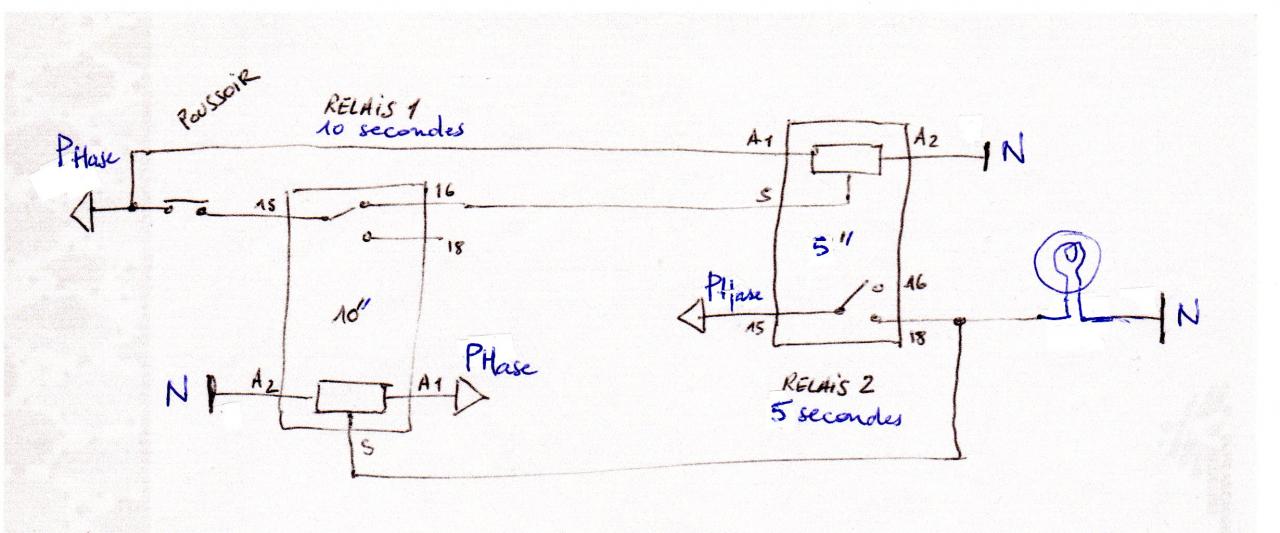 POUSSOIR
RELAIS 1
10 secondes
PHase
A1
A2
N
15
16
S
18
5"
10"
PHase
16
15
18
N
PHase
N
A2
A1
RELAIS 2
5 secondes
S